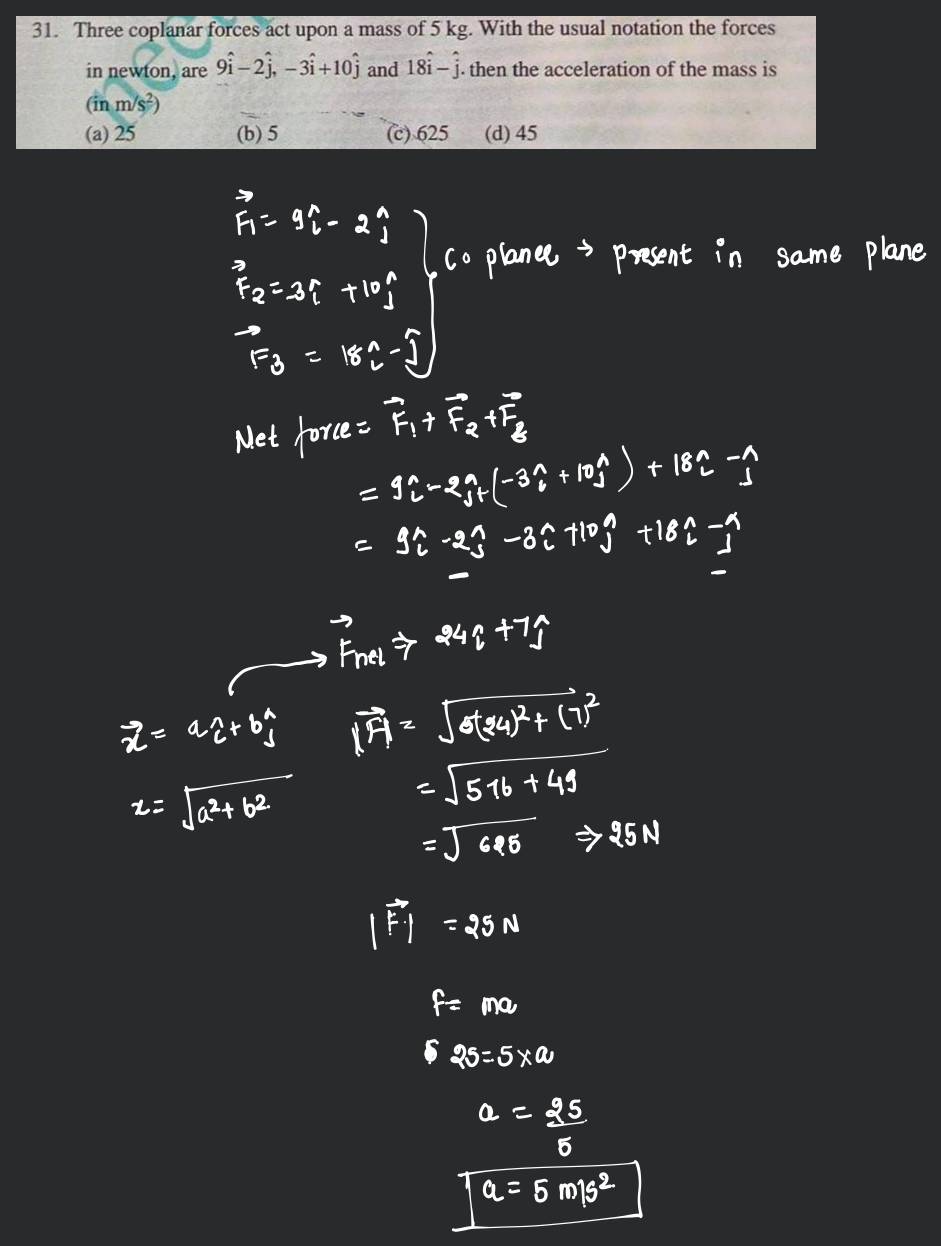 31. Three coplanar forces act upon a mass of 5 kg. With the usual notation the forces
in newton, are 9î – 2ĵ, – 3î + 10ĵ and 18î – ĵ. then the acceleration of the mass is
(in m/s²)
(a) 25 (b) 5 (c) 625 (d) 45
F⃗1 = 9î - 2ĵ
F⃗2 = -3î + 10ĵ
Co planer → present in same plane
F⃗3 = 18î - ĵ
Net force = F⃗1 + F⃗2 + F⃗3
= 9î - 2ĵ + (-3î + 10ĵ) + 18î - ĵ
= 9î - 2ĵ - 3î + 10ĵ + 18î - ĵ
F⃗net ⇒ 24î + 7ĵ
x⃗ = aî + bĵ |F⃗| = √(24)² + (7)²
= √576 + 49
x = √a² + b²
= √625 ⇒ 25 N
|F⃗| = 25 N
f = ma
25 = 5 × a
a = 25
5
a = 5 m/s²